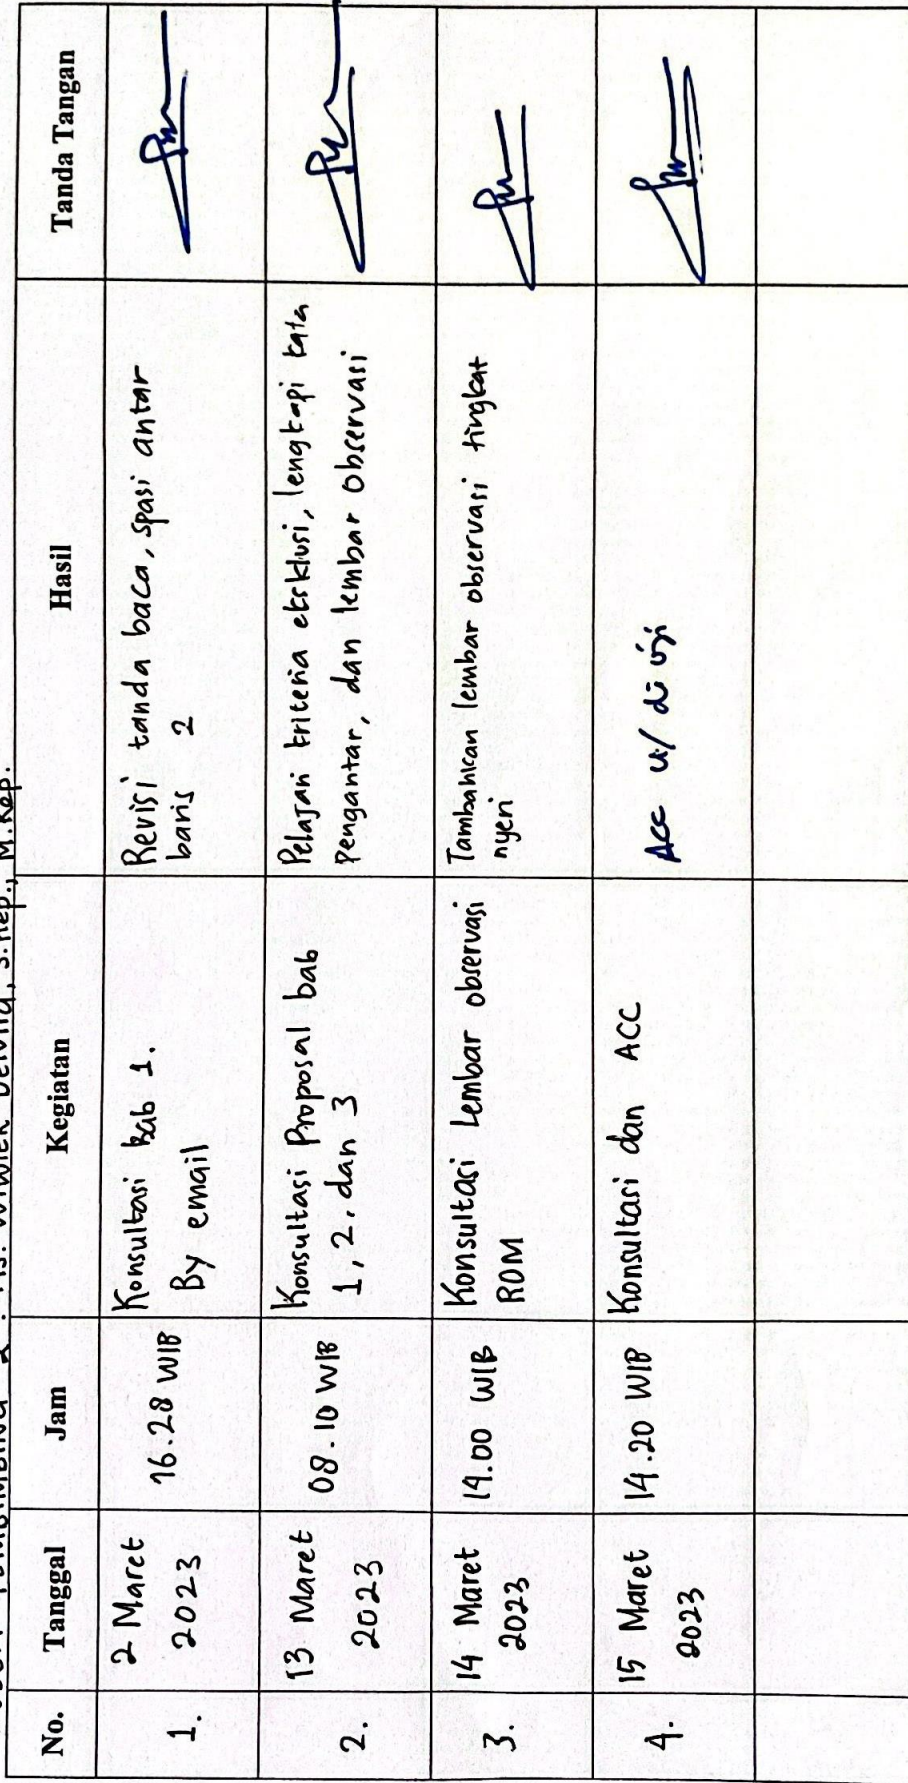 Pembimbing 2 : Ns. Wiwiek Delvira, S.Kep., M.Kep.
No. Tanggal Jam Kegiatan Hasil Tanda Tangan
1. 2 Maret 16.28 WIB Konsultasi bab 1. Revisi tanda baca, spasi antar
2023 By email baris 2
2. 13 Maret 08.10 WIB Konsultasi Proposal bab Pelajari kriteria eksklusi, lengkapi kata
2023 1, 2, dan 3 pengantar, dan lembar observasi
3. 14 Maret 14.00 WIB Konsultasi Lembar observasi Tambahkan lembar observasi tingkat
2023 ROM nyeri
4. 15 Maret 14.20 WIB Konsultasi dan ACC Acc u/ di uji
2023